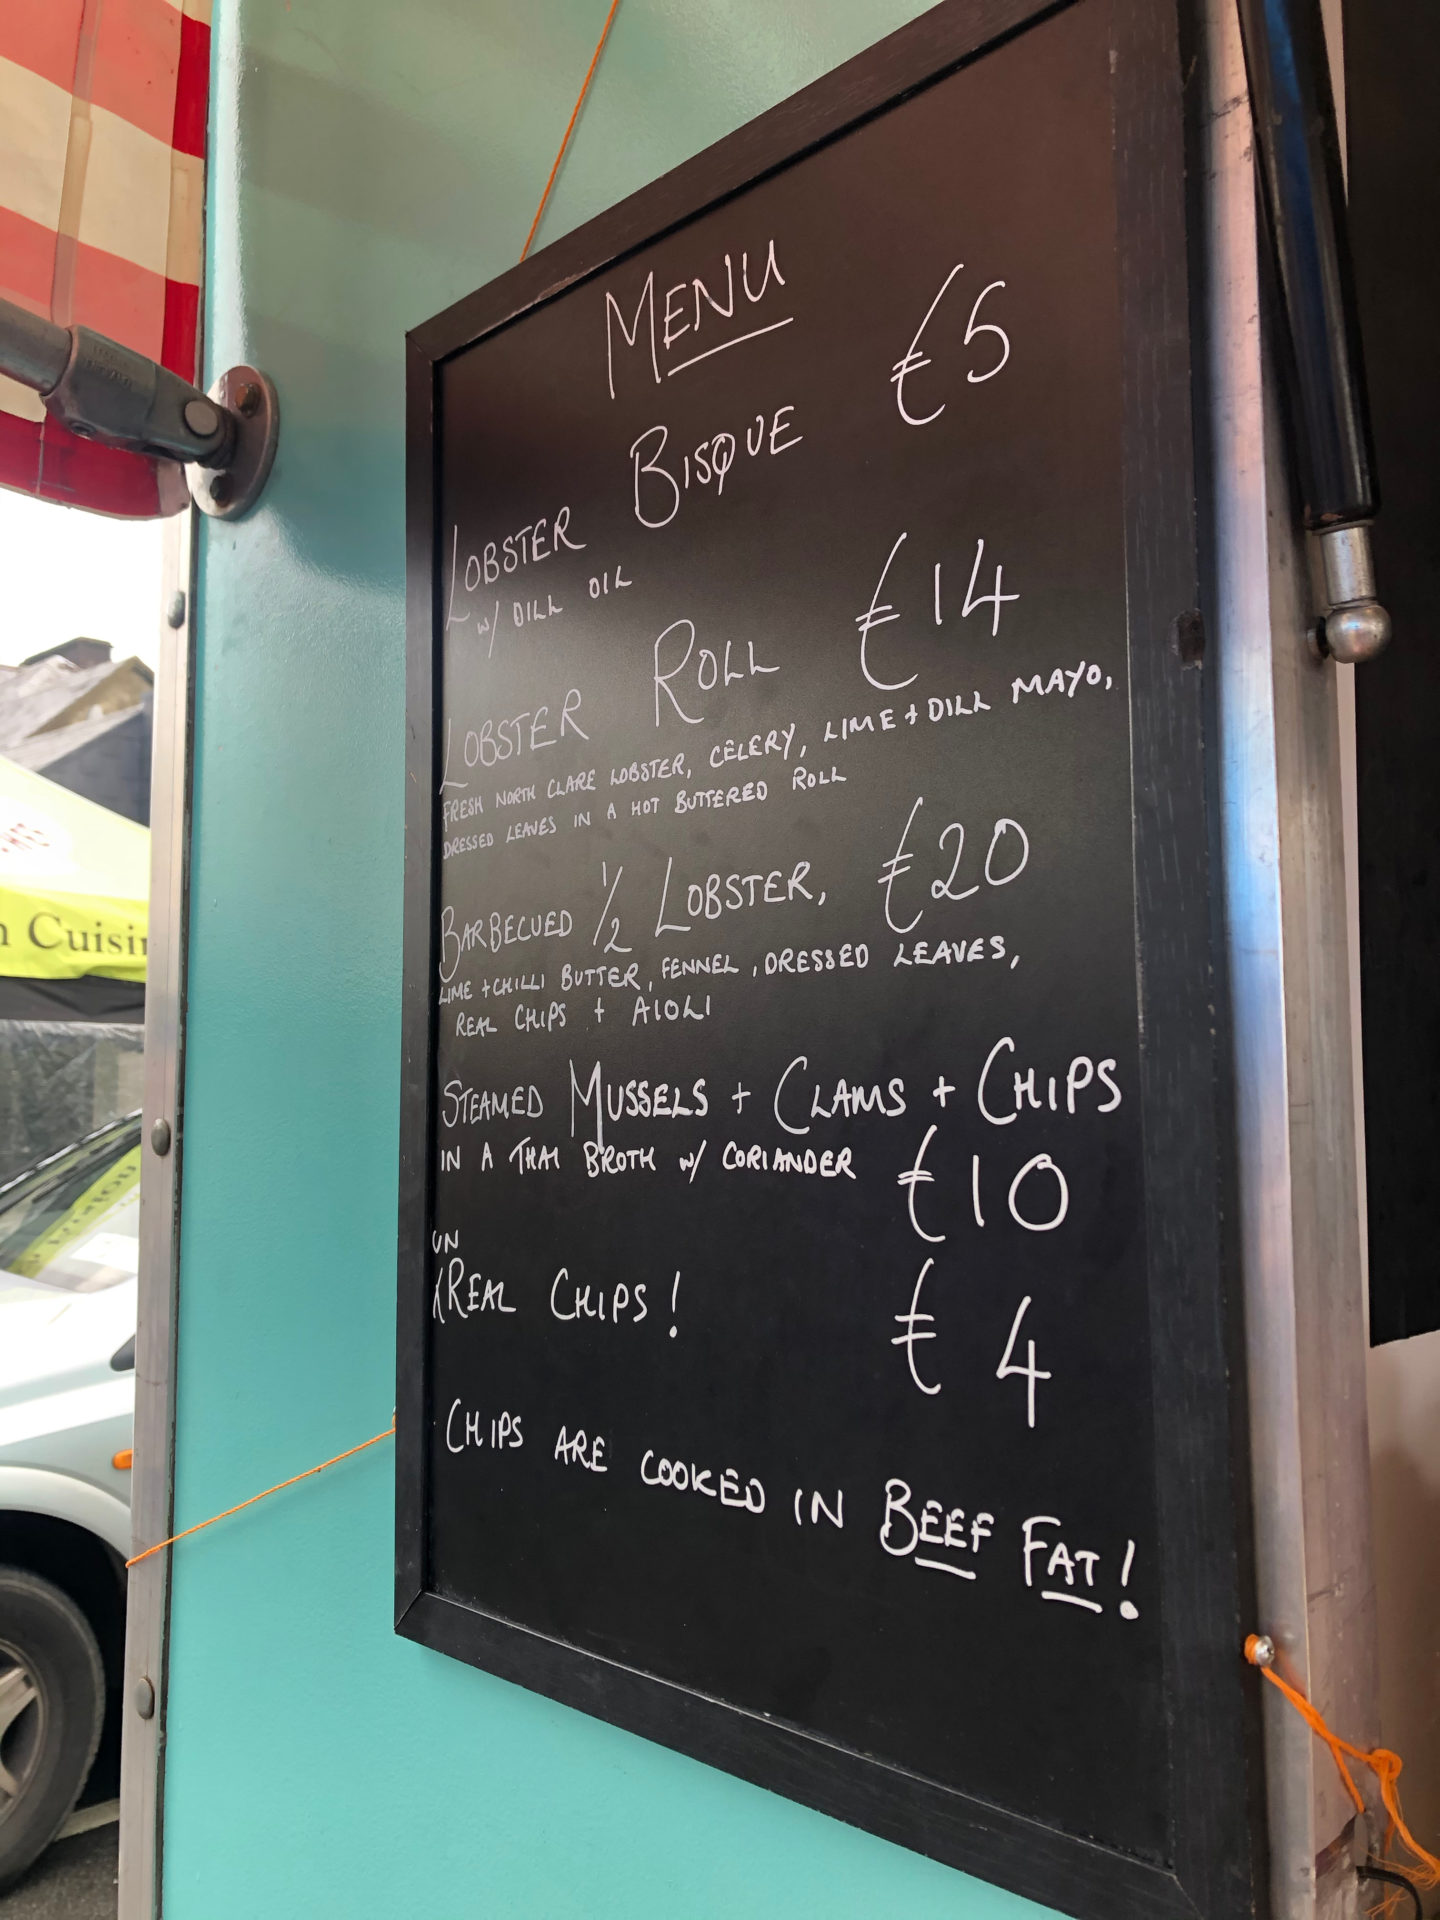 MENU
LOBSTER BISQUE €5
w/ DILL OIL
LOBSTER ROLL €14
FRESH NORTH CLARE LOBSTER, CELERY, LIME + DILL MAYO,
DRESSED LEAVES IN A HOT BUTTERED ROLL
BARBECUED 1/2 LOBSTER, €20
LIME + CHILLI BUTTER, FENNEL, DRESSED LEAVES,
REAL CHIPS + AIOLI
STEAMED MUSSELS + CLAMS + CHIPS
IN A THAI BROTH w/ CORIANDER €10
UN
REAL CHIPS! € 4
CHIPS ARE COOKED IN BEEF FAT!
n Cuisin